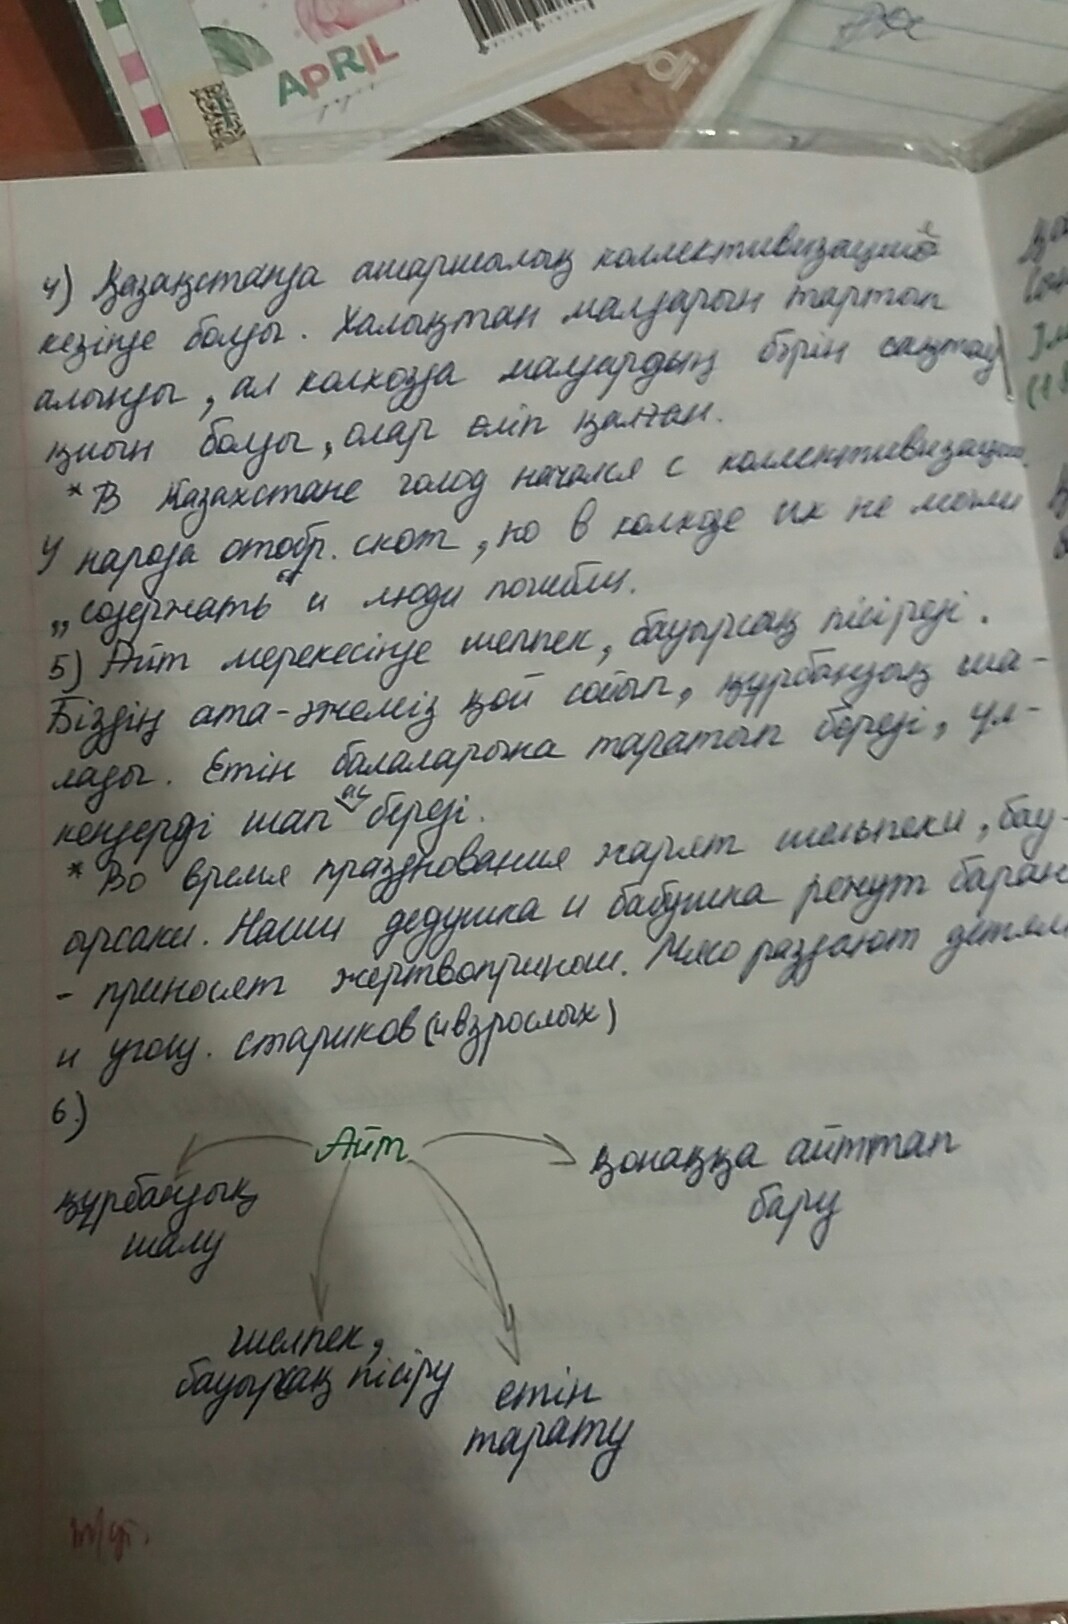 APRIL
4) Қазақстанда ашаршылық коллективизация
кезінде болды. Халықтан малдарын тартып
алынды, ал колхозда малдардың бәрін сақтау
қиын болды, олар өліп қалған.
* В Казахстане голод начался с коллективизации.
У народа отобр. скот, но в колхозе их не могли
„содержать" и люди погибли.
5) Айт мерекесінде шелпек, бауырсақ пісіреді.
Біздің ата-әжеміз қой сойып, құрбандық ша-
лады. Етін балаларына таратып береді, үл-
кендерді шап ақ береді.
* Во время празднования жарят шельпеки, бау-
ырсаки. Наши дедушка и бабушка режут баран
- приносят жертвоприной. Мясо раздают детям
и угощ. стариков (и взрослых)
6.)
Айт
құрбандық
шалу
шелпек,
бауырсақ пісіру
етін
тарату
қонаққа айттап
бару